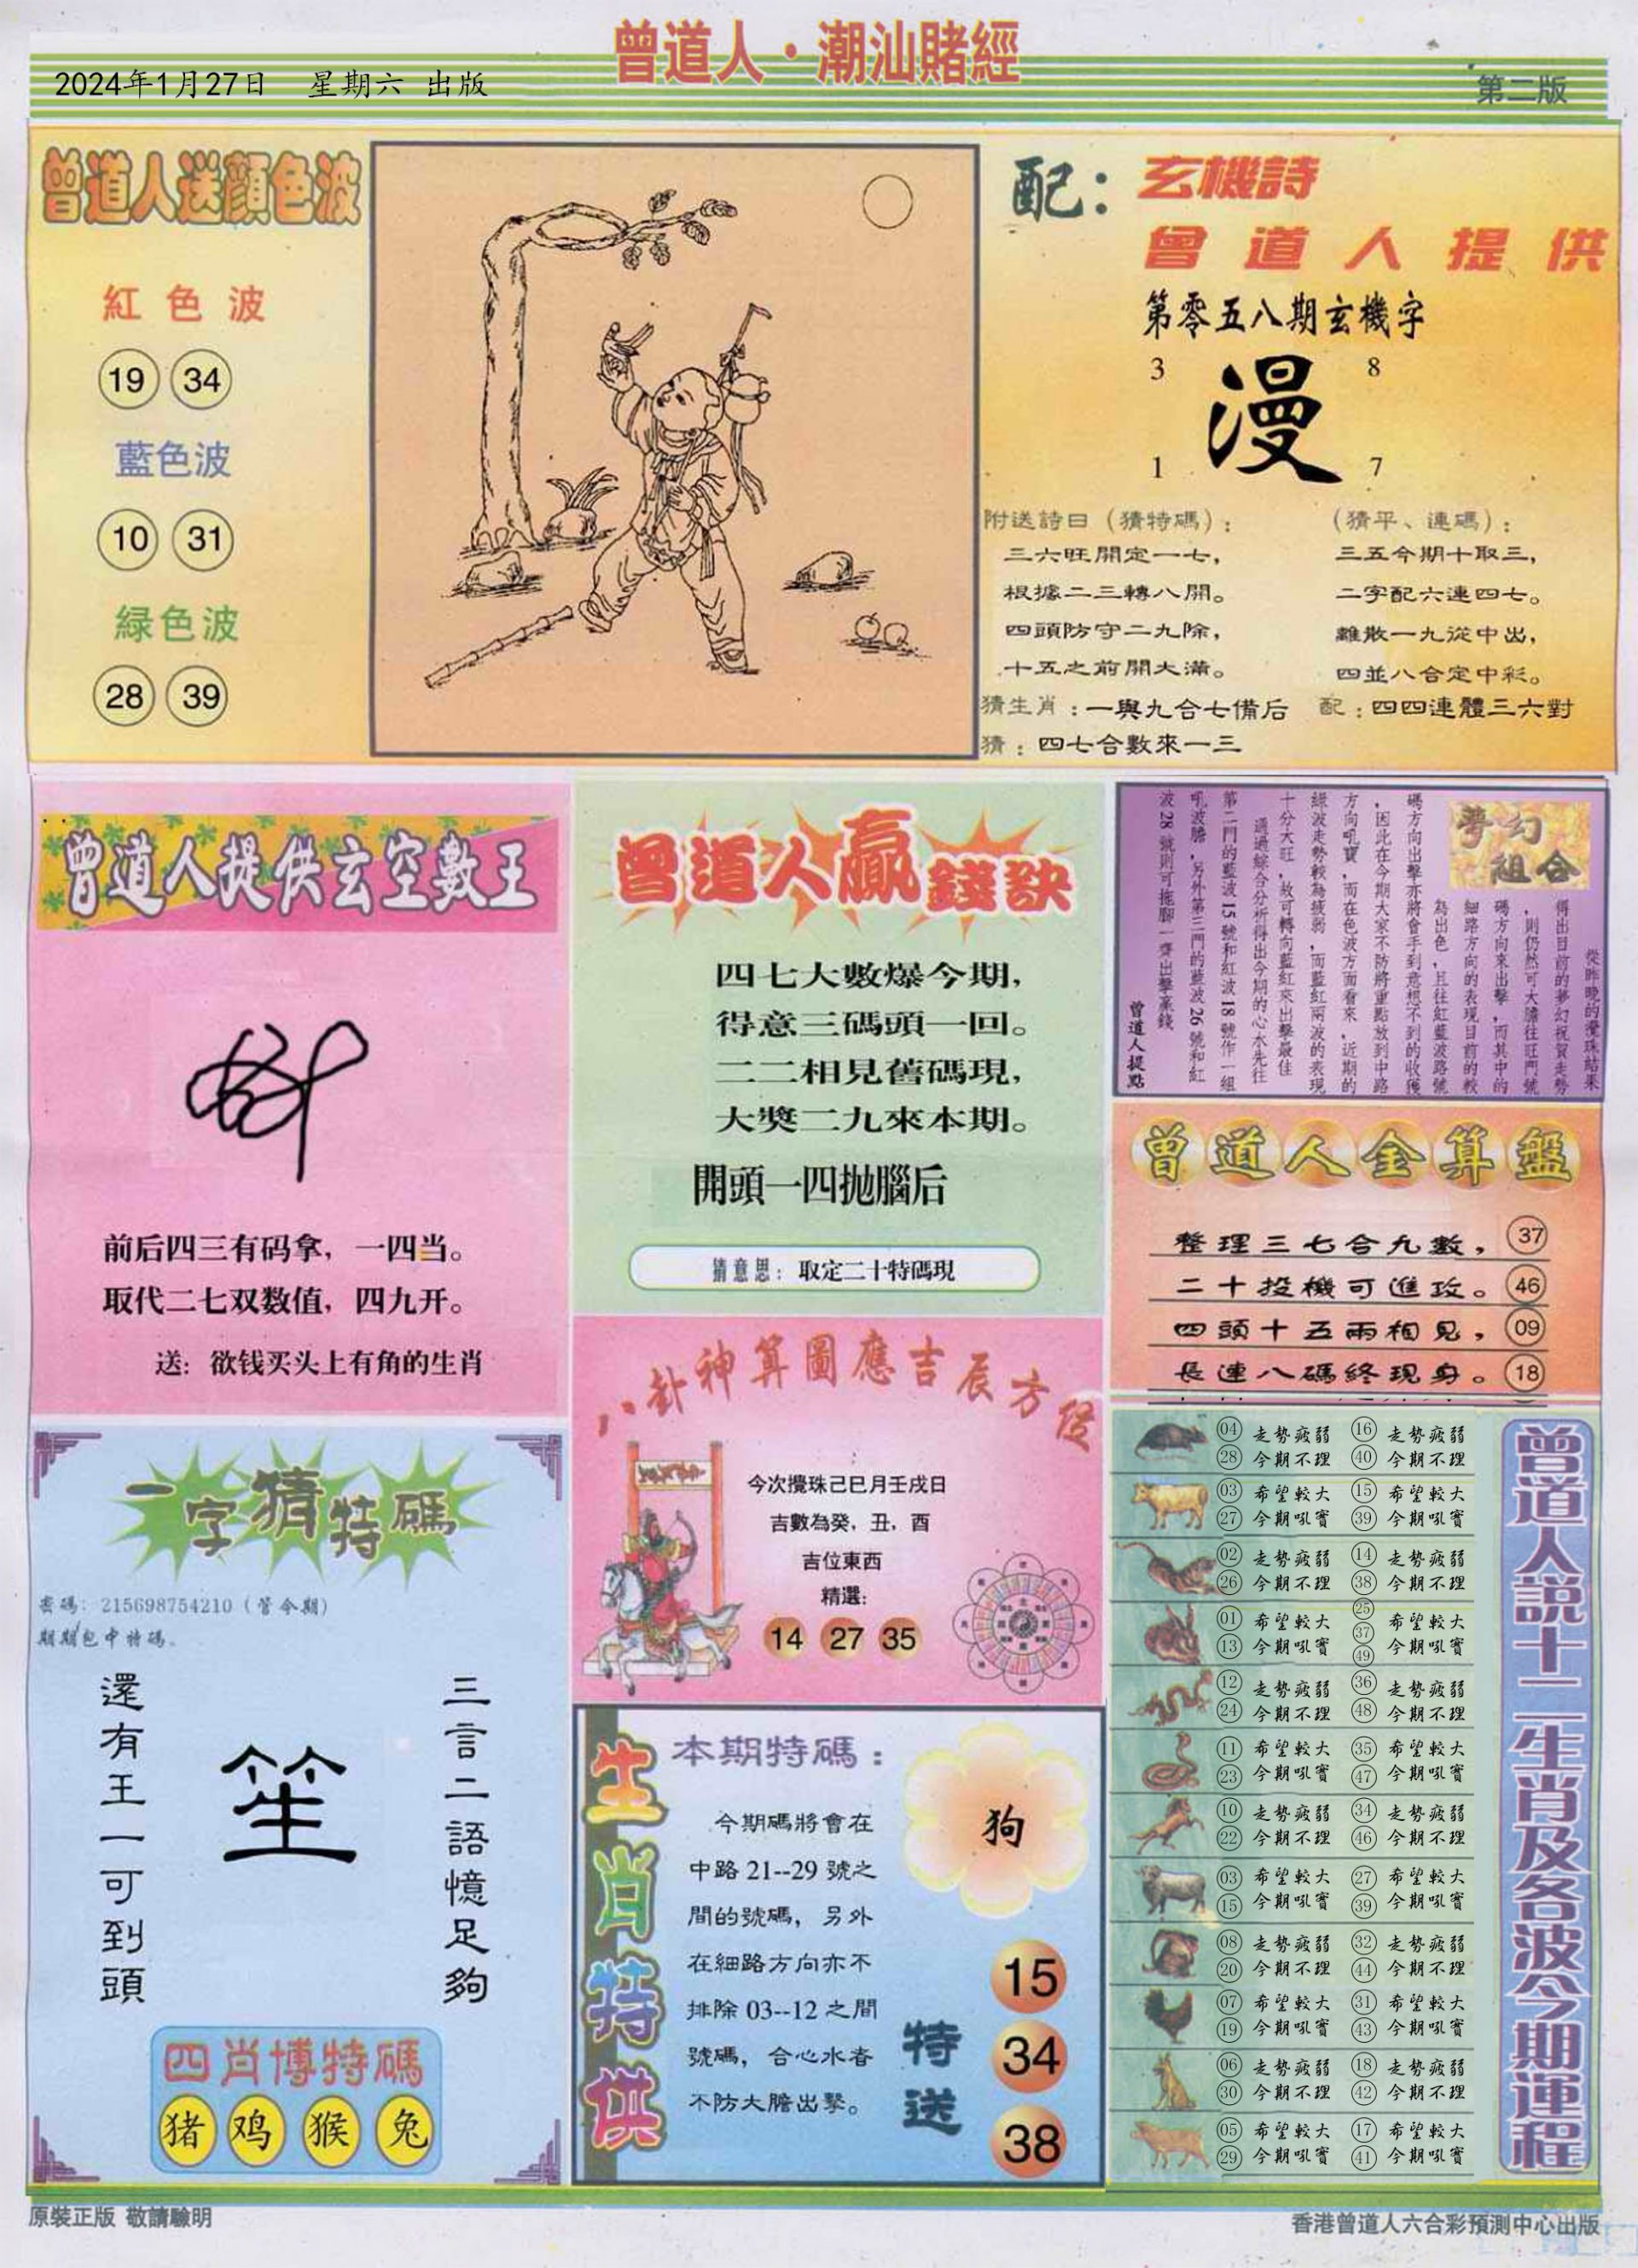 曾道人·潮汕賭經
2024年1月27日 星期六 出版
第二版
曾道人送顔色波
紅色波
19 34
藍色波
10 31
緑色波
28 39
配：玄機詩
曾道人提供
第零五八期玄機字
3 8
漫
1 7
附送詩日（猜特碼）：
三六旺開定一七，
根據二三轉八開。
四頭防守二九除，
十五之前開大滿。
（猜平、連碼）：
三五今期十取三，
二字配六連四七。
離散一九從中出，
四並八合定中彩。
猜生肖：一與九合七備后
配：四四連體三六對
猜：四七合數來一三
曾道人提供玄空數王
前后四三有码拿，一四当。
取代二七双数值，四九开。
送：欲钱买头上有角的生肖
曾道人贏錢訣
四七大數爆今期，
得意三碼頭一回。
二二相見舊碼現，
大獎二九來本期。
開頭一四抛腦后
猜意思：取定二十特碼現
夢幻
組合
從昨晚的攪珠結果
得出目前的夢幻祝賀走勢
，則仍然可大膽往旺門號
碼方向來出擊，而其中的
細路方向的表現目前的較
為出色，且往紅藍波路號
碼方向出擊亦將會手到意想不到的收獲
，因此在今期大家不防將重點放到中路
方向吼寶，而在色波方面看來，近期的
緑波走勢較為疲弱，而藍紅兩波的表現
十分大旺，故可轉向藍紅來出擊最佳
通過綜合分析得出今期的心水先往
第二門的藍波15號和紅波18號作一組
吼波膽，另外第三門的藍波26號和紅
波28號則可拖腳一齊出擊贏錢
曾道人提點
曾道人金算盤
整理三七合九數， 37
二十投機可進攻。 46
四頭十五兩相見， 09
長連八碼終現身。 18
八卦神算圖應吉辰方位
今次攪珠己巳月壬戌日
吉數為癸，丑，酉
吉位東西
精選：
14 27 35
一字猜特碼
密碼：215698754210（管今期）
期期包中特碼。
三言二語憶足夠
笙
還有王一可到頭
四肖博特碼
猪 鸡 猴 兔
生肖特供
本期特碼：
今期碼將會在
中路21--29號之
間的號碼，另外
在細路方向亦不
排除03--12之間
號碼，合心水者
不防大膽出擊。
狗
特送
15
34
38
曾道人說十二生肖及各波今期運程
04 走勢疲弱 16 走勢疲弱
28 今期不理 40 今期不理
03 希望較大 15 希望較大
27 今期吼實 39 今期吼實
02 走勢疲弱 14 走勢疲弱
26 今期不理 38 今期不理
01 希望較大 25 37 希望較大
13 今期吼實 49 今期吼實
12 走勢疲弱 36 走勢疲弱
24 今期不理 48 今期不理
11 希望較大 35 希望較大
23 今期吼實 47 今期吼實
10 走勢疲弱 34 走勢疲弱
22 今期不理 46 今期不理
03 希望較大 27 希望較大
15 今期吼實 39 今期吼實
08 走勢疲弱 32 走勢疲弱
20 今期不理 44 今期不理
07 希望較大 31 希望較大
19 今期吼實 43 今期吼實
06 走勢疲弱 18 走勢疲弱
30 今期不理 42 今期不理
05 希望較大 17 希望較大
29 今期吼實 41 今期吼實
原裝正版 敬請驗明
香港曾道人六合彩預測中心出版